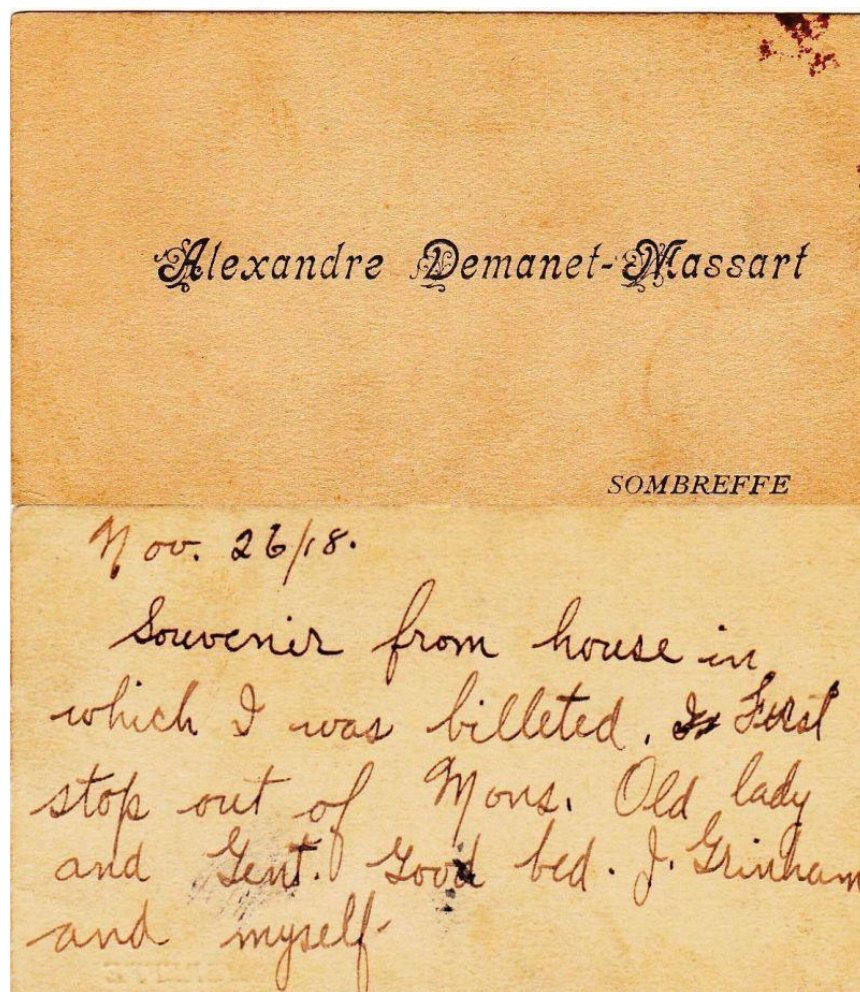 Alexandre Demanet-Massart
SOMBREFFE
Nov. 26/18.
Souvenir from house in
which I was billeted. First
stop out of Mons. Old lady
and Gent. Good bed. J. Grinham
and myself.